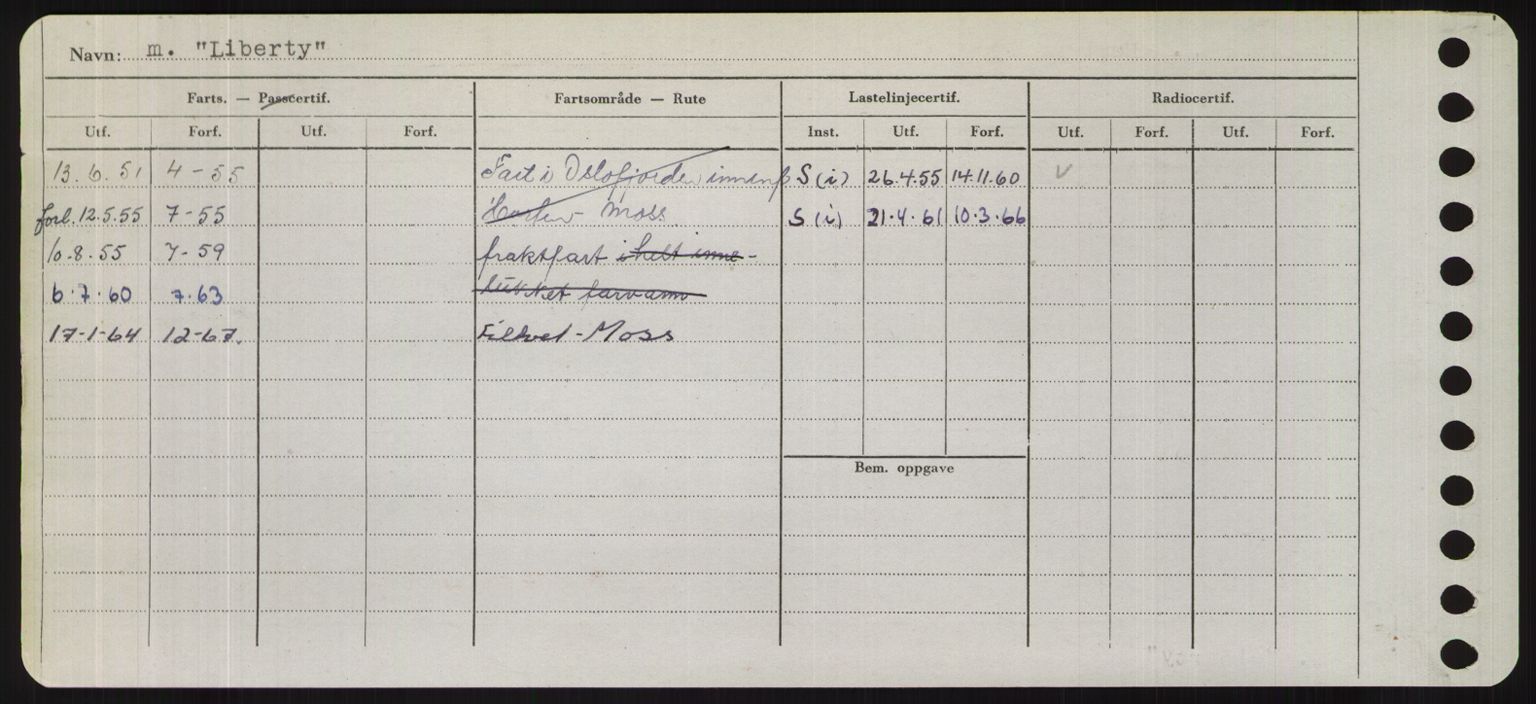 Navn: m. "Liberty"
Farts. — Passcertif. Fartsområde — Rute Lastelinjecertif. Radiocertif.
Utf. Forf. Utf. Forf. Inst. Utf. Forf. Utf. Forf. Utf. Forf.
13.6.51 4-55 Fart i Oslofjorden innenf S (i) 26.4.55 14.11.60 v
forl. 12.5.55 7-55 Moss S (i) 21.4.61 10.3.66
10.8.55 7-59 fraktfart i helt inne-
6.7.60 7.63 lukket farvann
17-1-64 12-67. Filtvet-Moss
Bem. oppgave